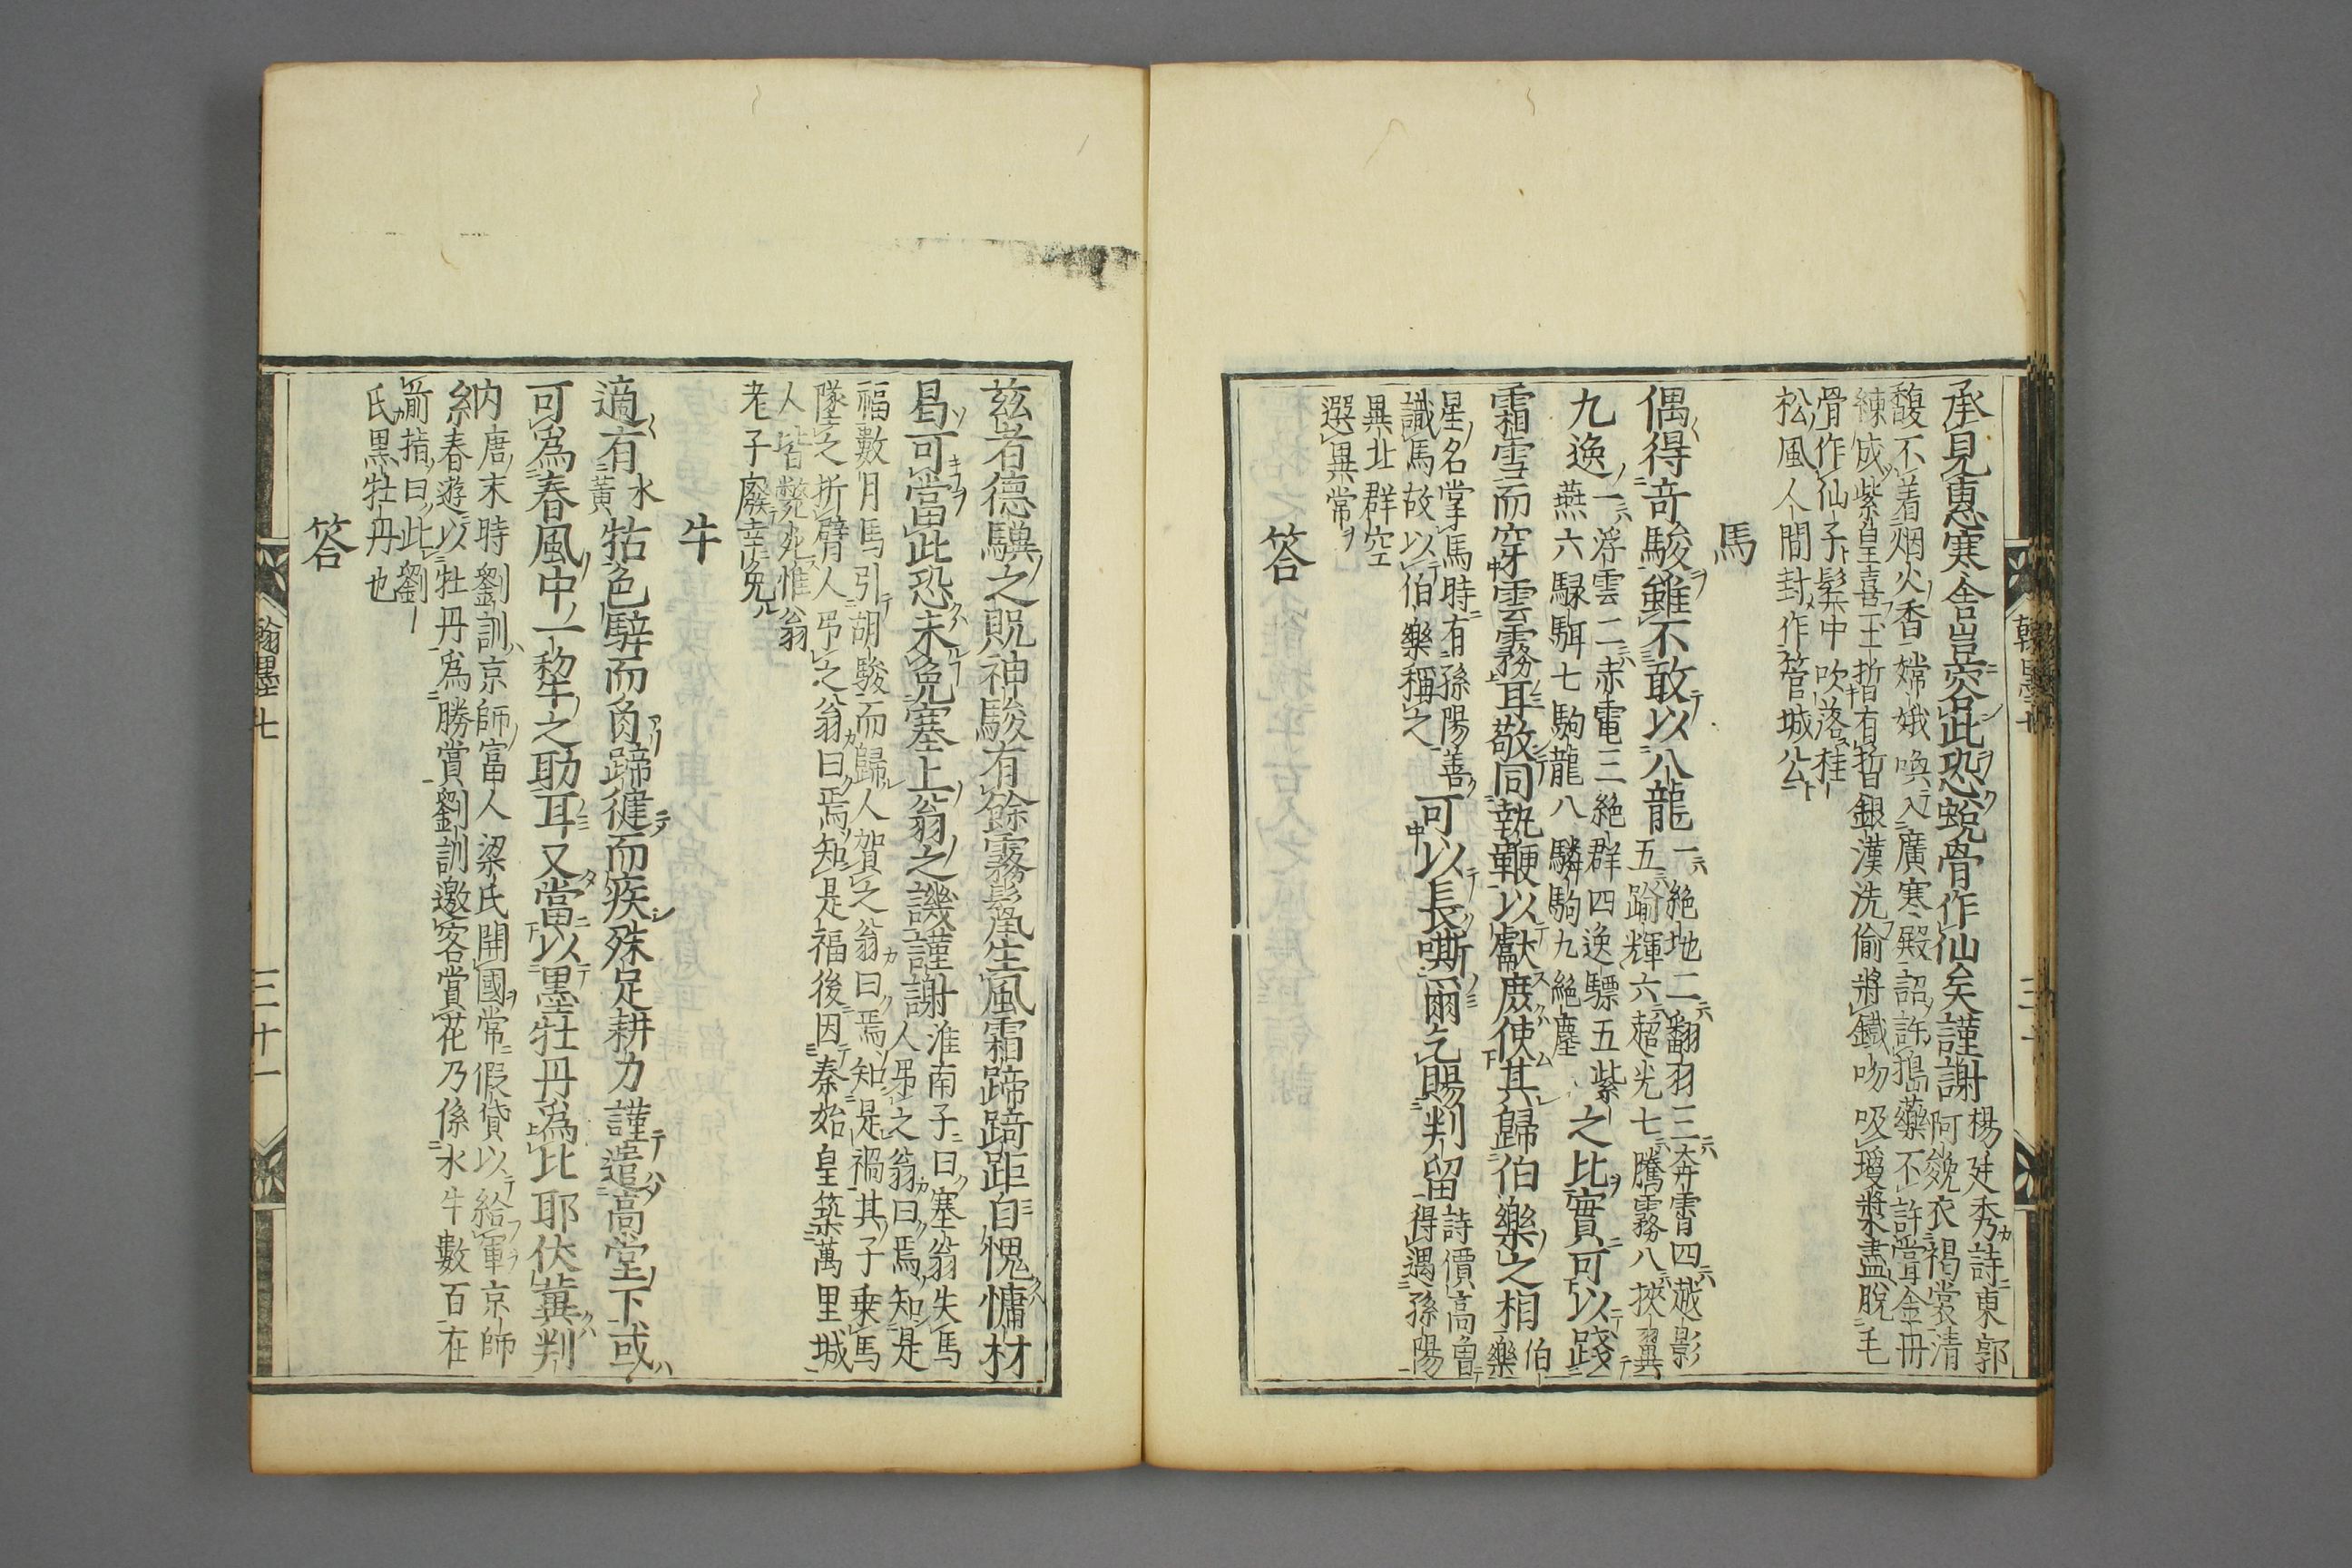 承見惠寒舍豈容此恐蛻骨作仙矣謹謝楊廷秀詩東郭
阿㕙衣褐裳清
馥不着烟火香嫦娥喚入廣寒殿詔許搗藥不許嘗金丹
練成紫皇喜玉晢有晢銀漢洗偷將鐵吻吸瓊漿盡脫毛
骨作仙子髹中吹落桂
松風人間封作管城公
馬
偶得奇駿雖不敢以八龍一絶地二翻羽三奔霄四越影
五踰輝六超光七騰霧八挾翼
九逸一浮雲二赤電三絶群四逸驃五紫
燕六騄駬七駒龍八驎駒九絶塵之比實可以踐
霜雪而穿雲霧耳敬同執鞭以獻庶使其歸伯樂之相伯
樂
星名掌馬時有孫陽善
識馬故以伯樂稱之可以長嘶爾乞賜判留詩價高魯
得遇孫陽
異北群空
選異常
答
兹者德驥之貺神駿有餘霧鬣生風霜蹄踦距自愧慵材
曷可當此恐未免塞上翁之譏謹謝淮南子曰塞翁失馬
人吊之翁曰焉知是
福數月馬引胡駿而歸人賀之翁曰焉知是禍其子乗馬
墜之折臂人吊之翁曰焉知是福後因秦始皇築萬里城
人皆斃死惟翁
老子廢幸免
牛
適有水
黄牯色騂而角蹄健而疾殊足耕力謹遣高堂下或
可爲春風中一犂之助耳又當以墨牡丹爲比耶伏冀判
納唐末時劉訓京師富人梁氏開國常假貸以給軍京師
絫春遊以牡丹爲勝賞劉訓邀客賞花乃係水牛數百在
前指曰此劉
氏黒牡丹也
答
翰墨七
三十一